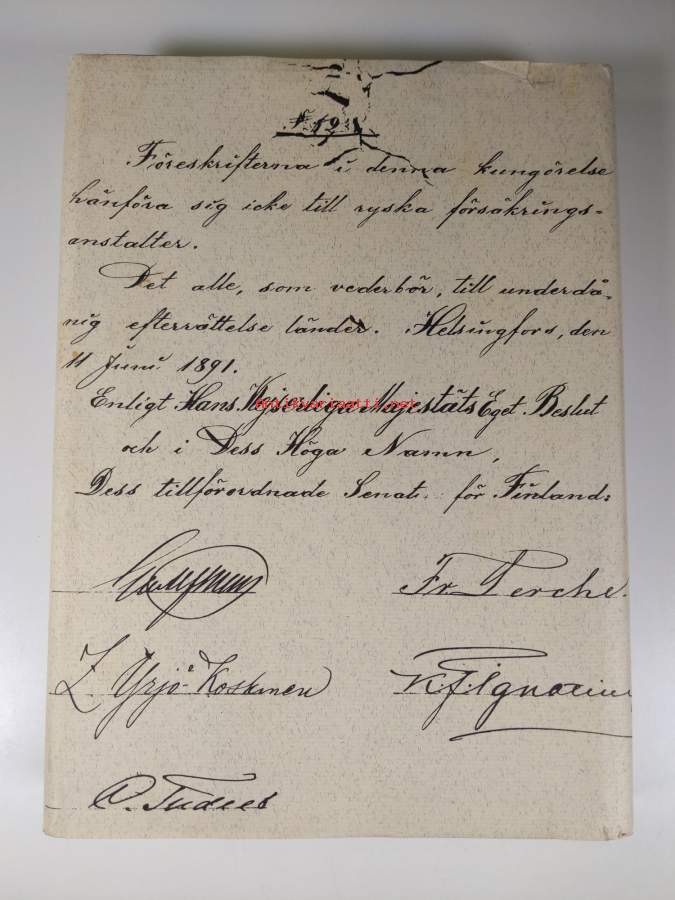 № 12
Föreskrifterna i denna kungörelse
hänföra sig icke till ryska försäkrings-
anstalter.
Det alle, som vederbör, till underdå-
nig efterrättelse länder. Helsingfors, den
11 Juni 1891.
Enligt Hans Kejserliga Majestäts Eget Beslut
och i Dess Höga Namn,
Dess tillförordnade Senat för Finland:
Fr. Perche
Z. Yrjö-Koskinen
K. F. Ignatius
O.